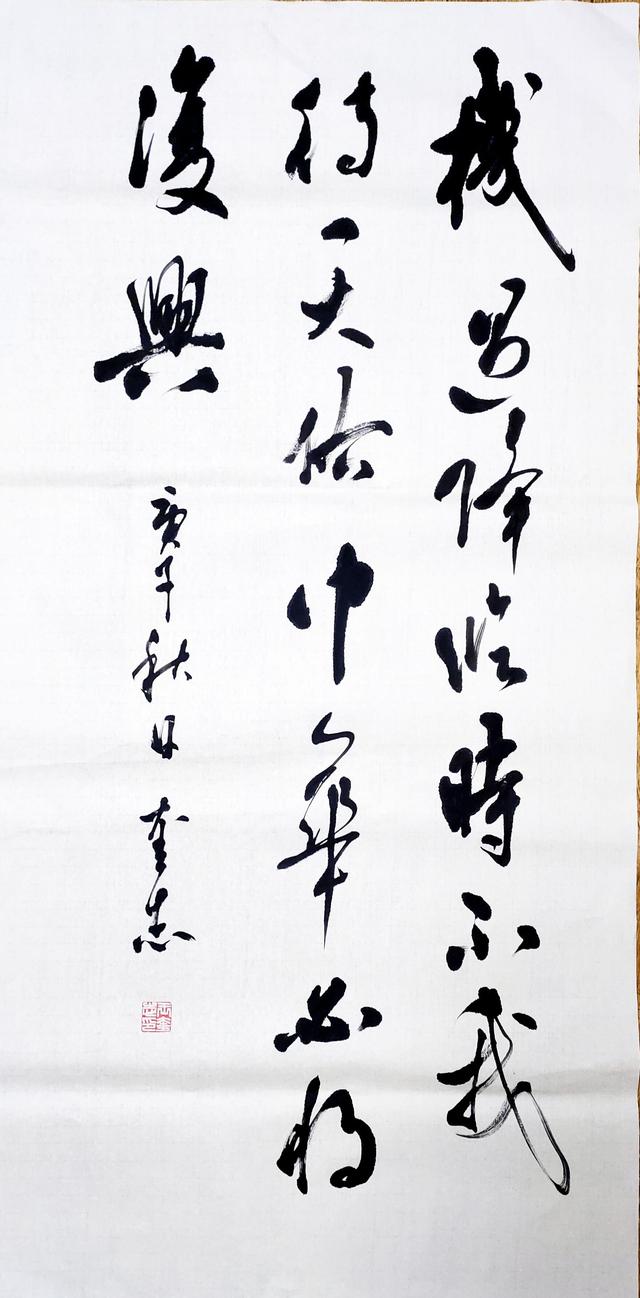 機遇降臨時不我
待天佑中華必將
復興
庚子秋日 奎志